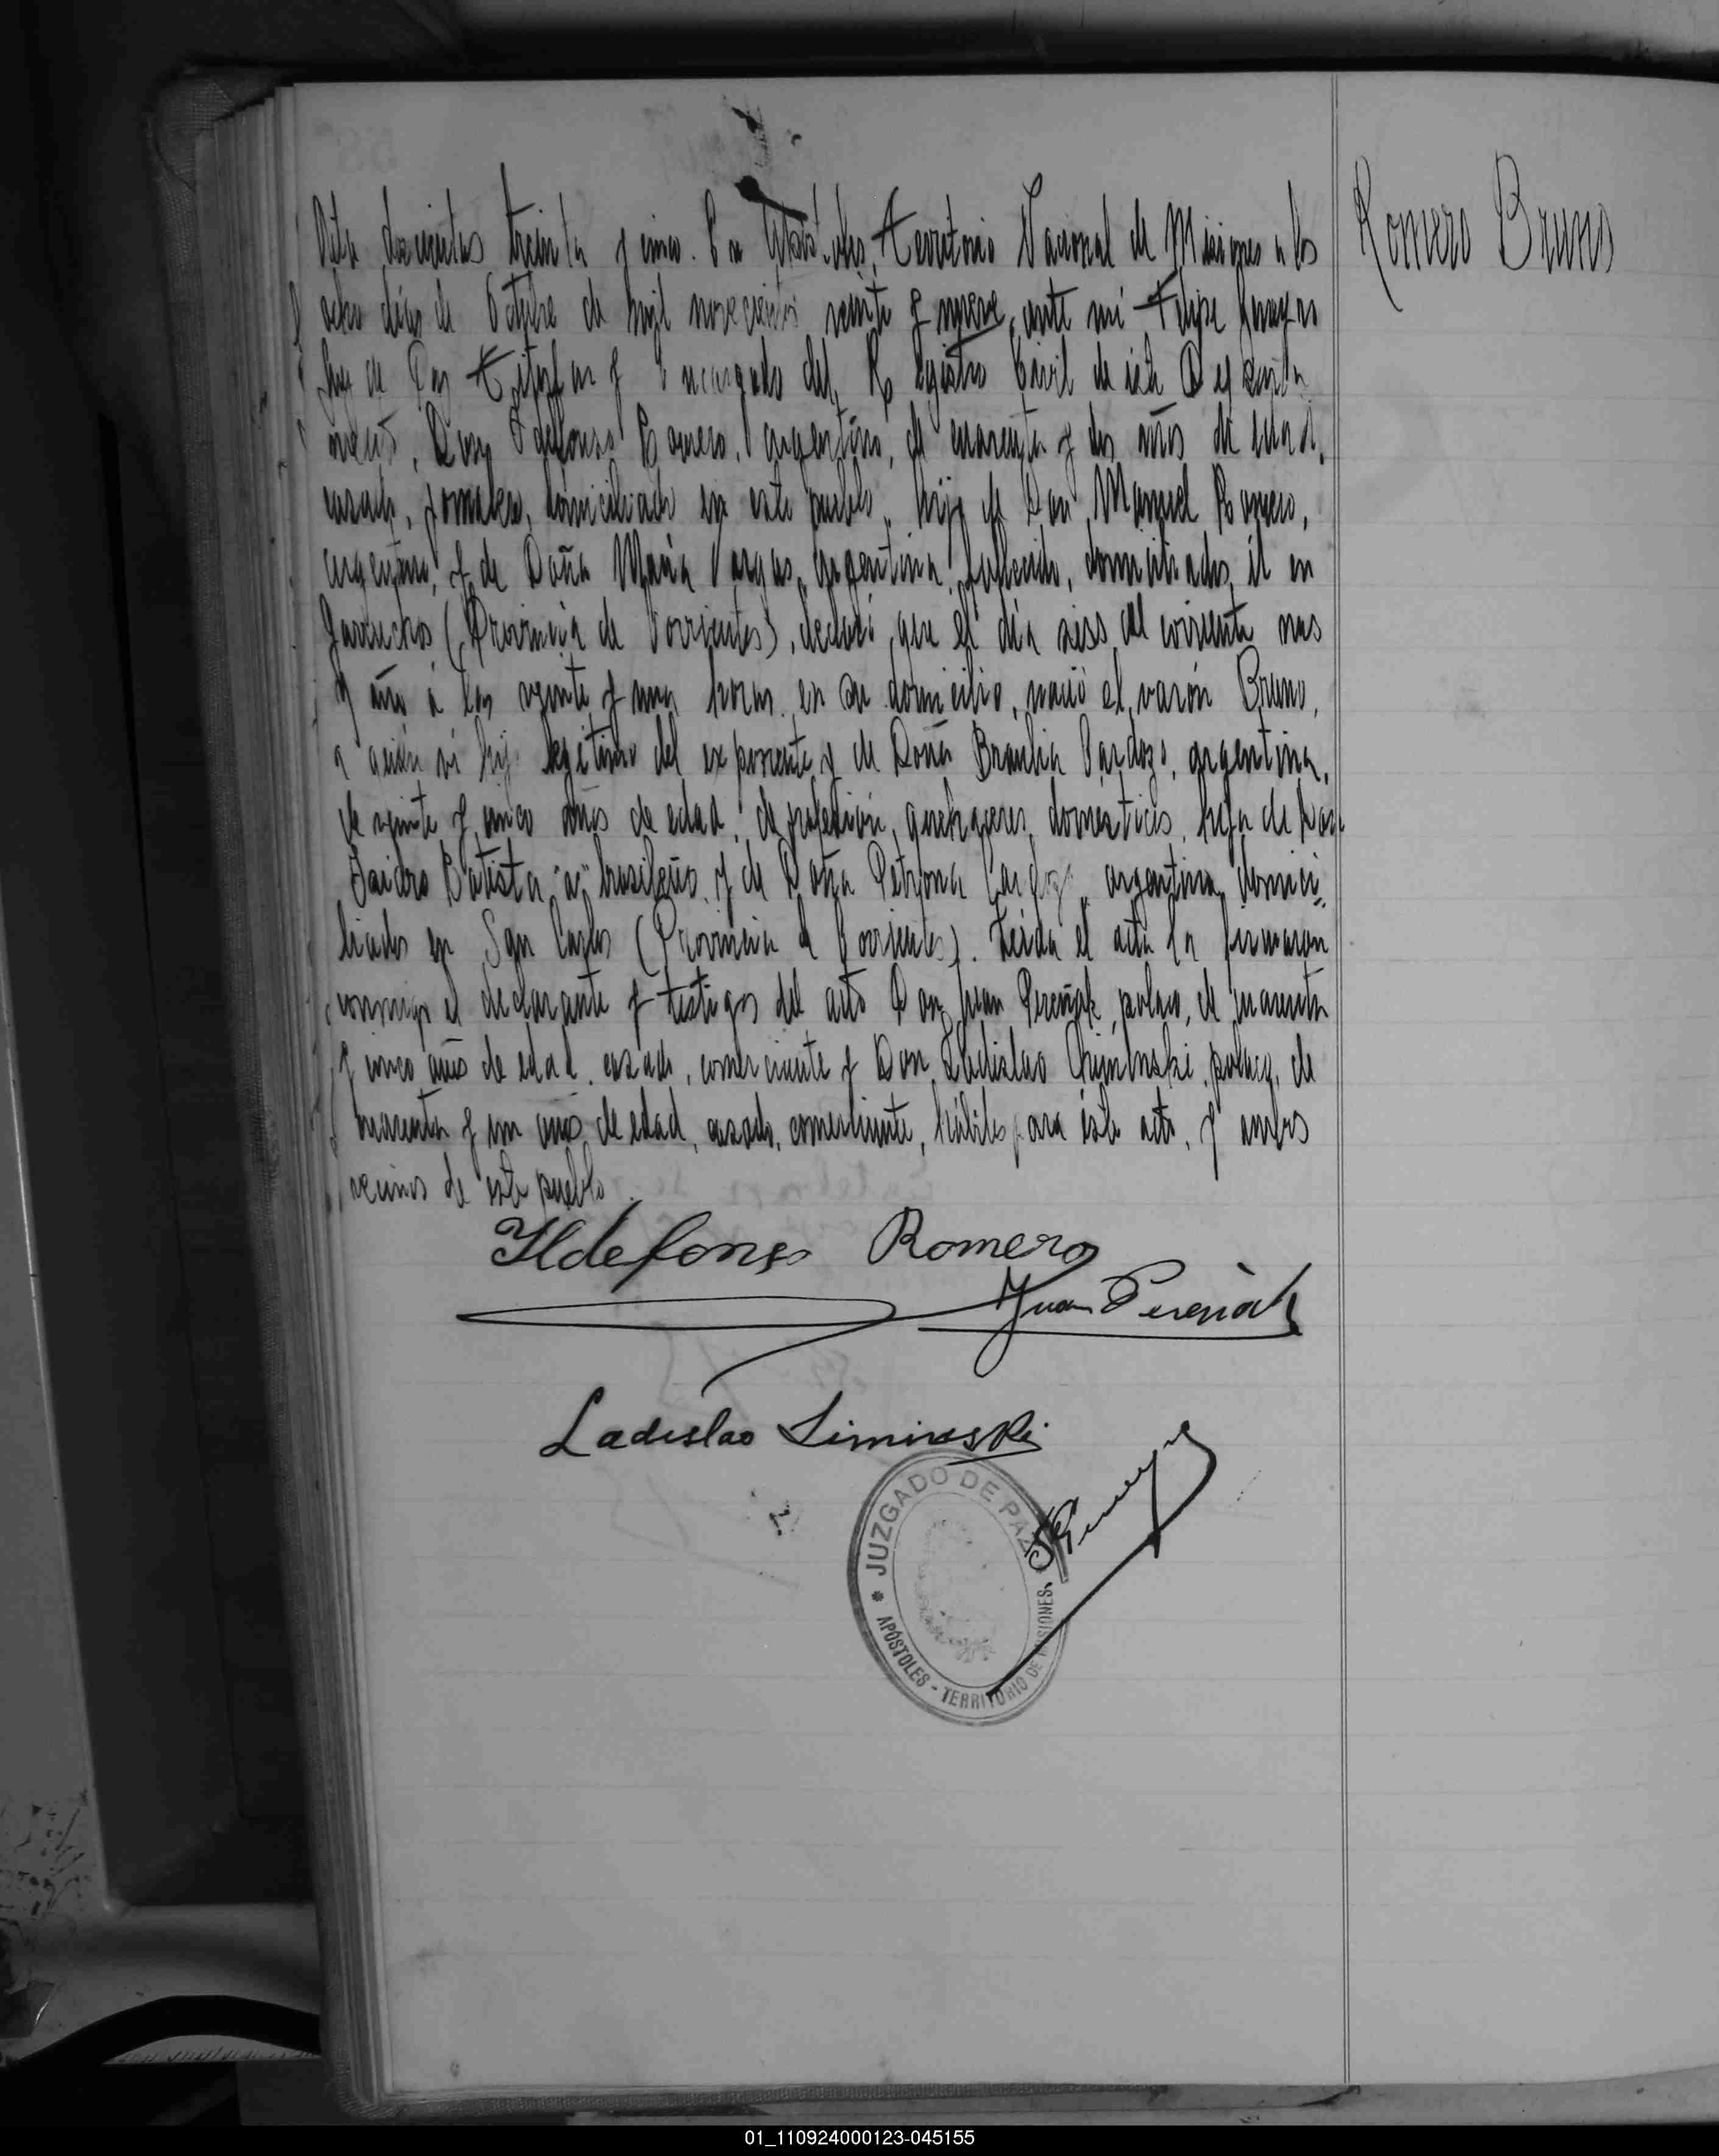 Romero Bruno
Acta doscientos treinta y cinco. En Apóstoles, Territorio Nacional de Misiones a los
ocho días de Octubre de mil novecientos veinte y nueve, ante mi Felipe
Juez de Paz Titular y Encargado del Registro Civil de este Departa
mento, Don Ildefonso Romero, argentino, de cuarenta y dos años de edad,
casado, jornalero, domiciliado en este pueblo, hijo de Don Manuel Romero,
argentino, y de Doña María Vargas, argentina, fallecida, domiciliados él en
Garruchos (Provincia de Corrientes), declaró que el día seis del corriente mes
y año á las veinte y una horas en su domicilio, nació el varón Bruno,
a quien ví hijo legítimo del exponente y de Doña Braulia Cardozo, argentina,
de veinte y cinco años de edad, de profesión, quehaceres domésticos, hija de Don
Isidro Batista brasileño y de Doña Petrona Cardozo, argentina, domici
liados en San Carlos (Provincia de Corrientes). Leída el acta la firmaron
conmigo el declarante y testigos del acto Don Juan Pereñak, polaco, de cuarenta
y cinco años de edad, casado, comerciante y Don Ladislao polaco, de
cuarenta y un años de edad, casado, comerciante, hábiles para éste acto, y ambos
vecinos de este pueblo.
Ildefonso Romero
Juan Pereñak
Ladislao Siminski
JUZGADO DE PAZ
APÓSTOLES - TERRITORIO DE MISIONES
01_110924000123-045155